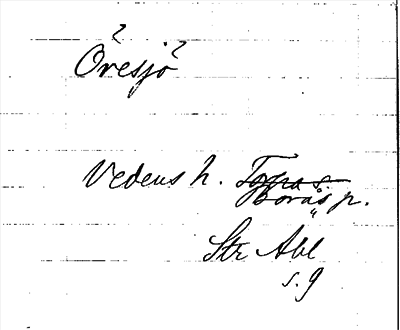 ? ?
Öresjö
Vedens h. Toarps Borås p.
Str Abl
s. 9